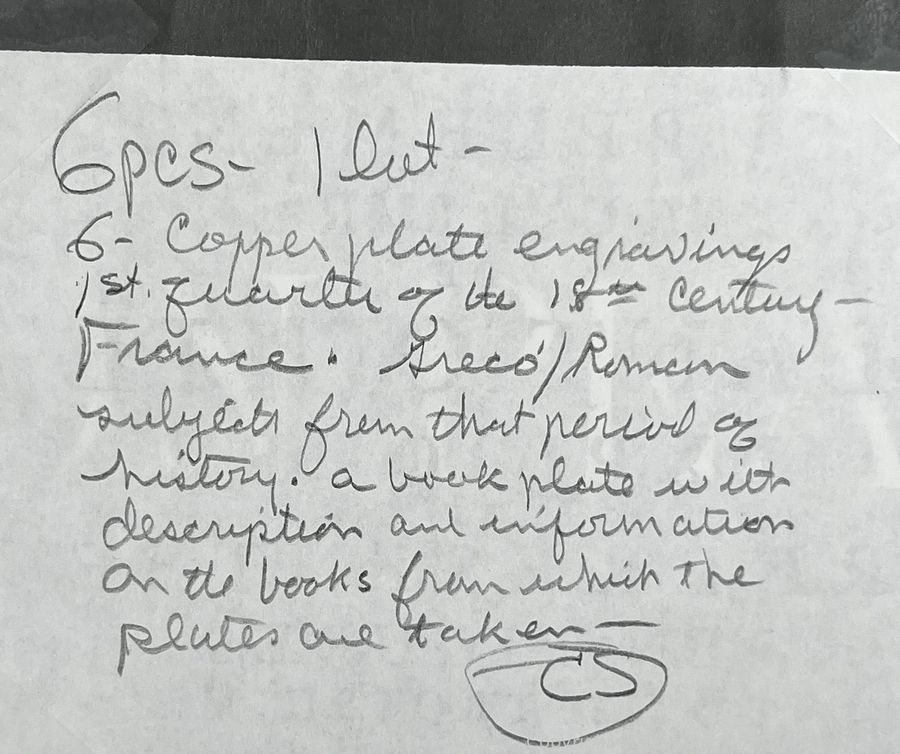 6pcs - 1 lot -
6 - Copper plate engravings
1st. quarter of the 18th Century -
France. Greco/Roman
subjects from that period of
history. a book plate with
description and information
on the books from which the
plates are taken -
CS